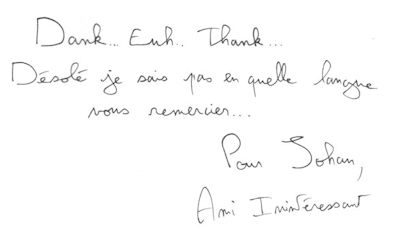 Dank... Euh.. Thank...
Désolé je sais pas en quelle langue
vous remercier...
Pour Johan,
Ami Inintéressant